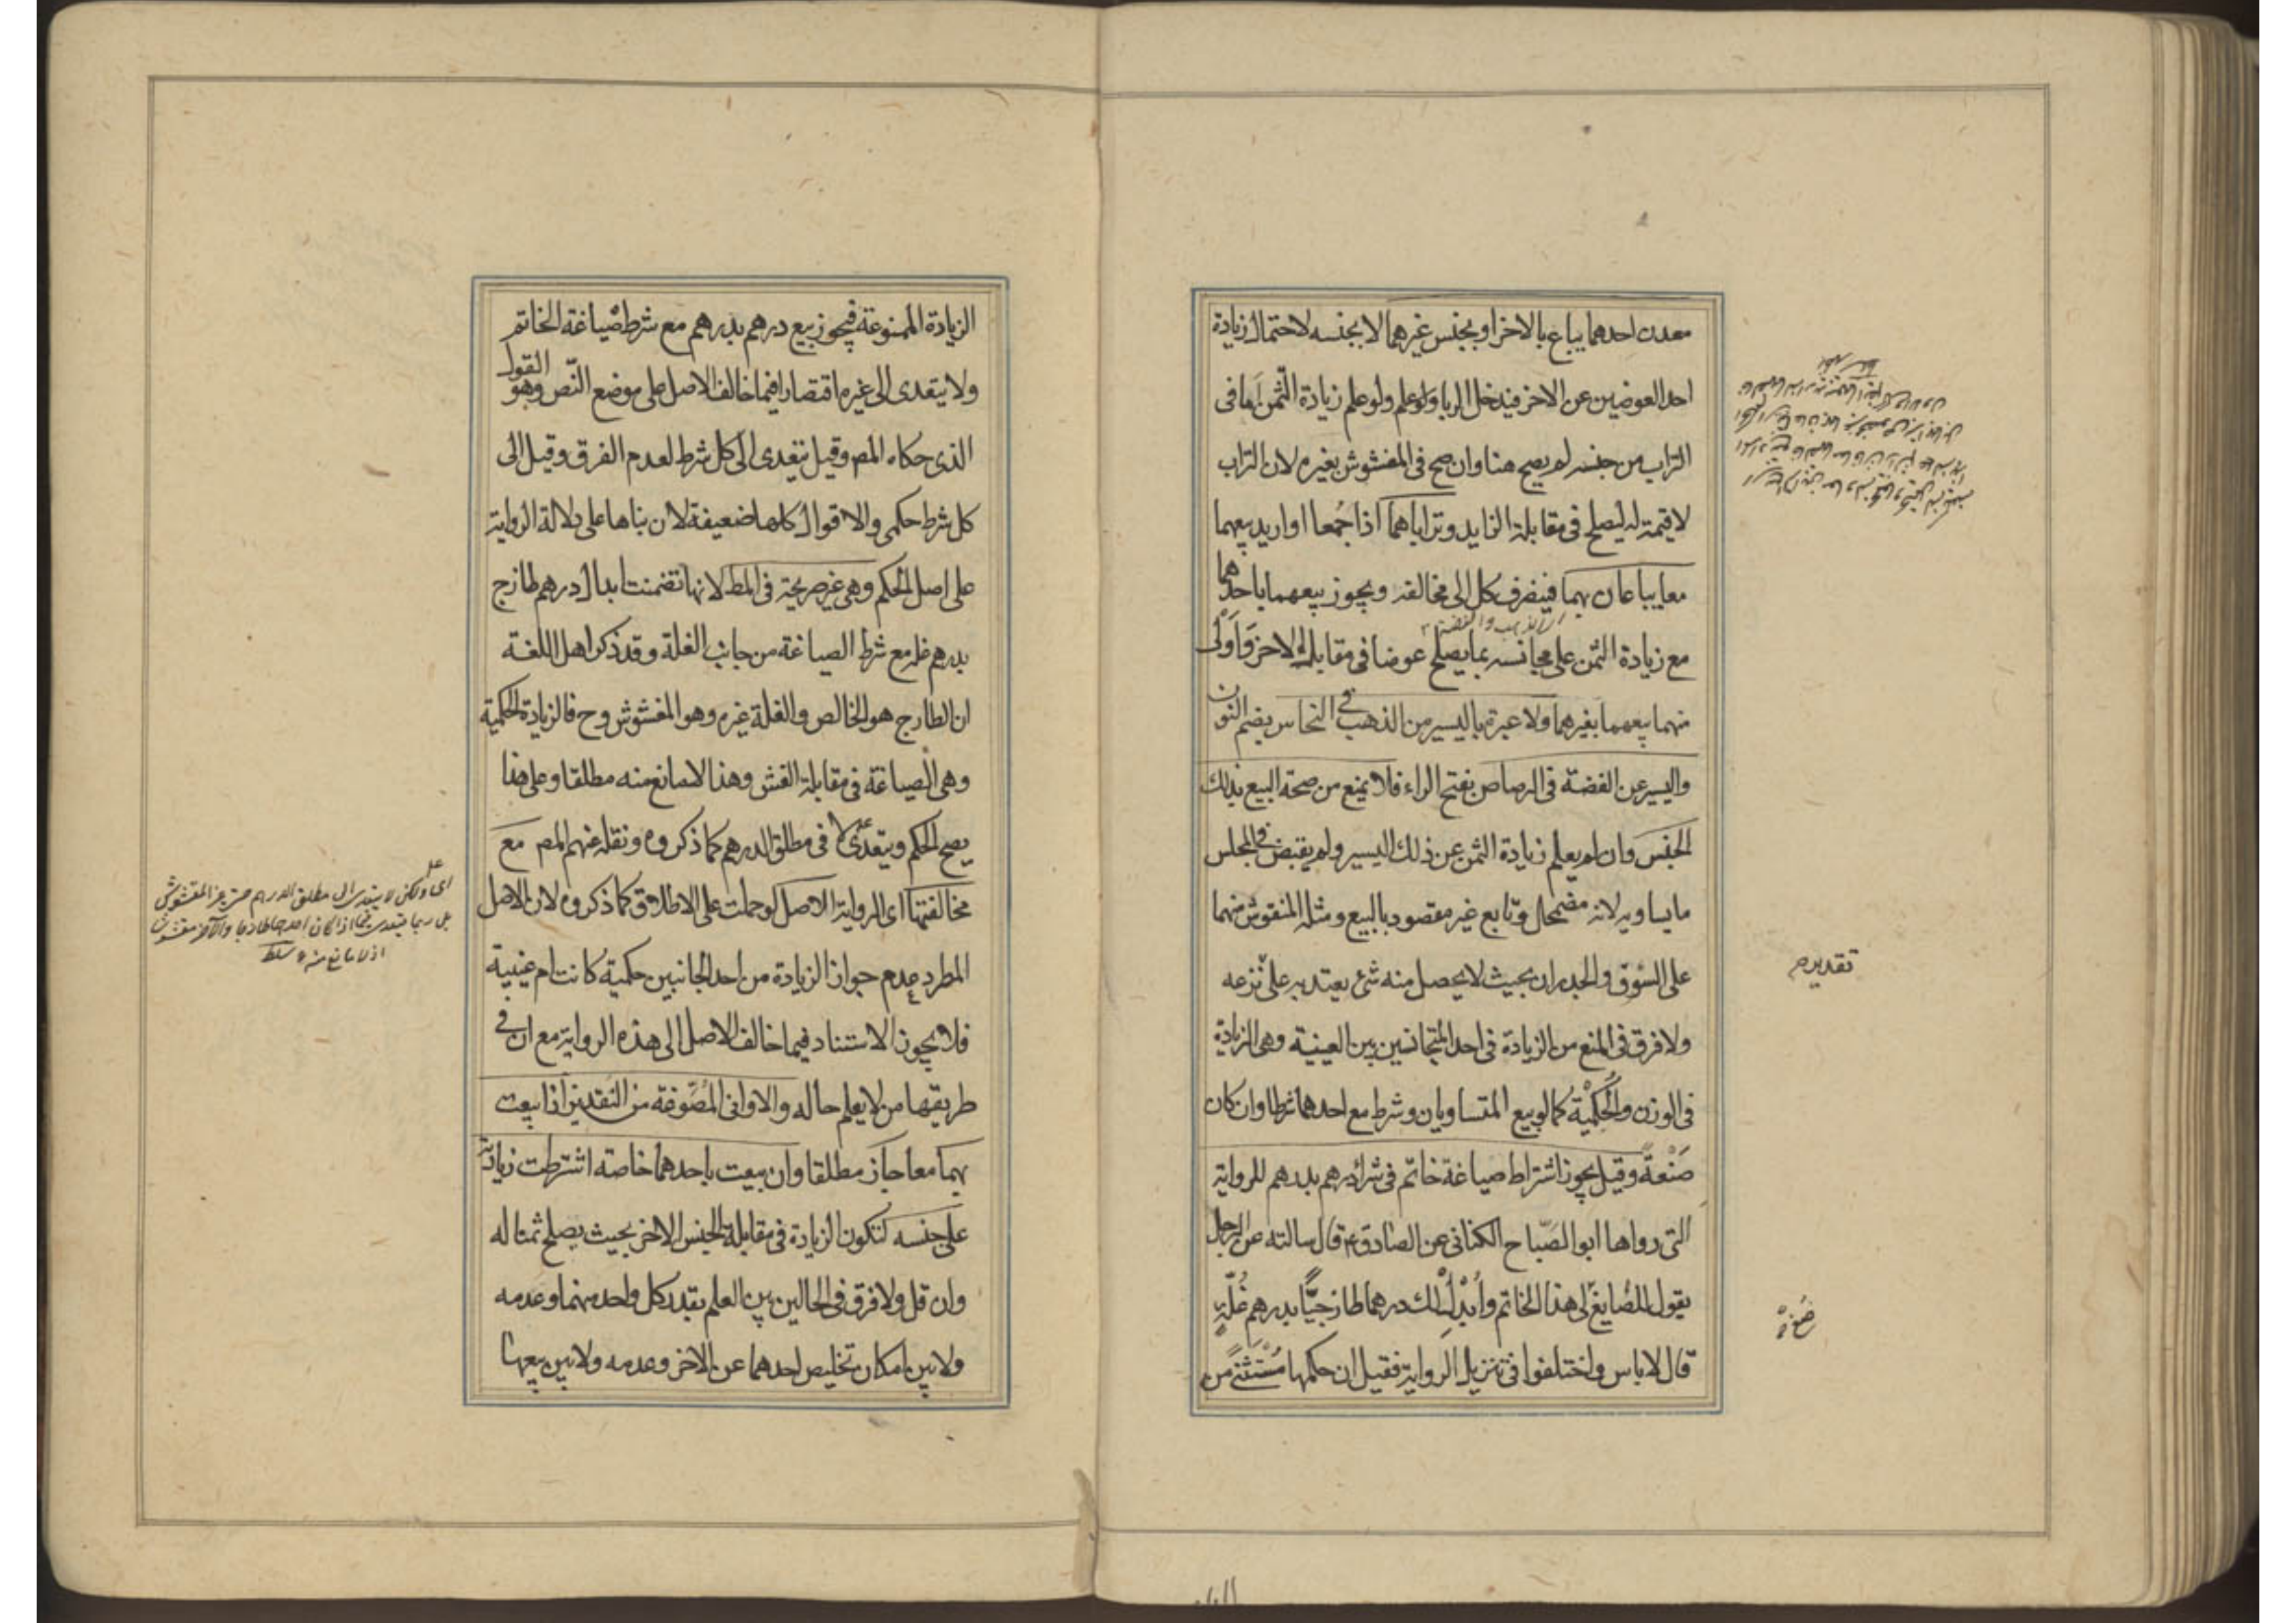 معدن احدهما يباع بالاخر او بجنس غيرهما لا بجنسه لاحتمال زيادة
احد العوضين عن الاخر فيدخل الربا ولو علم زيادة الثمن عما في
التراب من جنسه لم يصح هنا وان صح في المغشوش بغيره لان التراب
لا قيمة له ليصلح في مقابلة الزايد وتراباهما اذا جُمعا او اريد بيعهما
معا يباعان بهما فينصرف كل الى مخالفه ويجوز بيعهما باحدهما
اى الذهب والفضة
مع زيادة الثمن على مجانسه بما يصلح عوضا في مقابلة الاخر وَاَوْلى
منهما بيعهما بغيرهما ولا عبرة باليسير من الذهب في النحاس بضم النون
واليسير من الفضة في الرصاص بفتح الراء فلا يمنع من صحة البيع بذلك
الجنس وان لم يعلم زيادة الثمن عن ذلك اليسير ولم يقبض في المجلس
ما يساويه لانه مضمحل وتابع غير مقصود بالبيع ومثله المنقوش منهما
على السّوق والجدران بحيث لا يحصل منه شئ يعتد به على نزعه
تقديره
ولا فرق في المنع من الزيادة في احد المتجانسين بين العينية وهى الزيادة
في الوزن والحُكْميّة كما لو بيع المتساويان وشرط مع احدهما شرطا وان كان
صَنْعةً وقيل يجوز اشتراط صياغة خاتم في شراء درهم بدرهم للرواية
التى رواها ابو الصّباح الكنانى عن الصادق ع قال سالته عن الرجل
يقول للصّايغ لى هذا الخاتم وأُبْدِلْ لك درهما طازجيًّا بدرهم غُلّةٍ
صُغْ
قال لا باس واختلفوا في تنزيل الرواية فقيل ان حكمها مُسْتَثْنًى من
الزيادة الممنوعة فيجوز بيع درهم بدرهم مع شرط صياغة الخاتم
ولا يتعدى الى غيره اقتصارا فيما خالف الاصل على موضع النّص وهو القول
الذى حكاه المص وقيل يتعدى الى كل شرط لعدم الفرق وقيل الى
كل شرط حكمى والاقوال كلها ضعيفة لان بناها على دلالة الرواية
على اصل الحكم وهى غير صريحة في المط لانها تضمنت ابدال درهم طازج
بدرهم غله مع شرط الصياغة من جانب الغلة وقد ذكر اهل اللغة
ان الطازج هو الخالص والغلة غيره وهو المغشوش وح فالزيادة الحكمية
وهى الصياغة في مقابلة الغش وهذا لا مانع منه مطلقا وعلى هذا
يصح الحكم ويتعدى لا في مطلق الدرهم كما ذكروه ونقله عنهم المص مع
مخالفتها اى الرواية الاصل لو حملت على الاطلاق كما ذكروه لان الاصل
اى ولكن لا يتعدى الى مطلق الدرهم حتى غير المغشوش
بل ربما يتعدى فيما اذا كان احدهما طازجا والآخر مغشوش
اذ لا مانع منه سلط
المطرد عدم جواز الزيادة من احد الجانبين حكمية كانت ام عينية
فلا يجوز الاستناد فيما خالف الاصل الى هذه الرواية مع ان في
طريقها من لا يعلم حاله والاوانى المَصُوغة من النقدين اذا بيعت
بهما معا جاز مطلقا وان بيعت باحدهما خاصة اشترطت زيادته
على جنسه لتكون الزيادة في مقابلة الجنس الاخر بحيث يصلح ثمنا له
وان قل ولا فرق في الحالين بين العلم بقدر كل واحد منهما وعدمه
ولا بين امكان تخليص احدهما عن الاخر وعدمه ولا بين بيعها